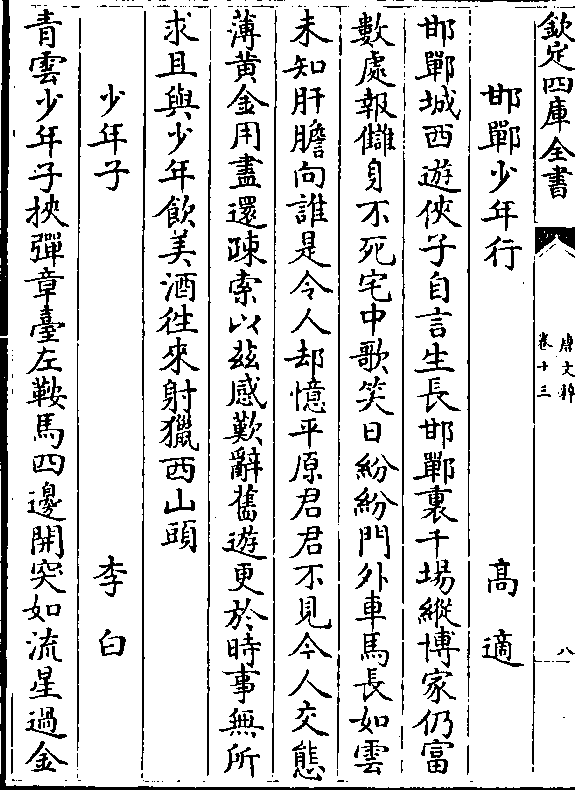 欽定四庫全書
唐文粹
卷十三
八
邯鄲少年行 高適
邯鄲城西遊俠子自言生長邯鄲裏千場縱博家仍富
數處報讎身不死宅中歌笑日紛紛門外車馬長如雲
未知肝膽向誰是令人却憶平原君君不見今人交態
薄黄金用盡還疎索以兹感歎辭舊遊更於時事無所
求且與少年飲美酒往來射獵西山頭
少年子 李白
青雲少年子挾彈章臺左鞍馬四邊開突如流星過金